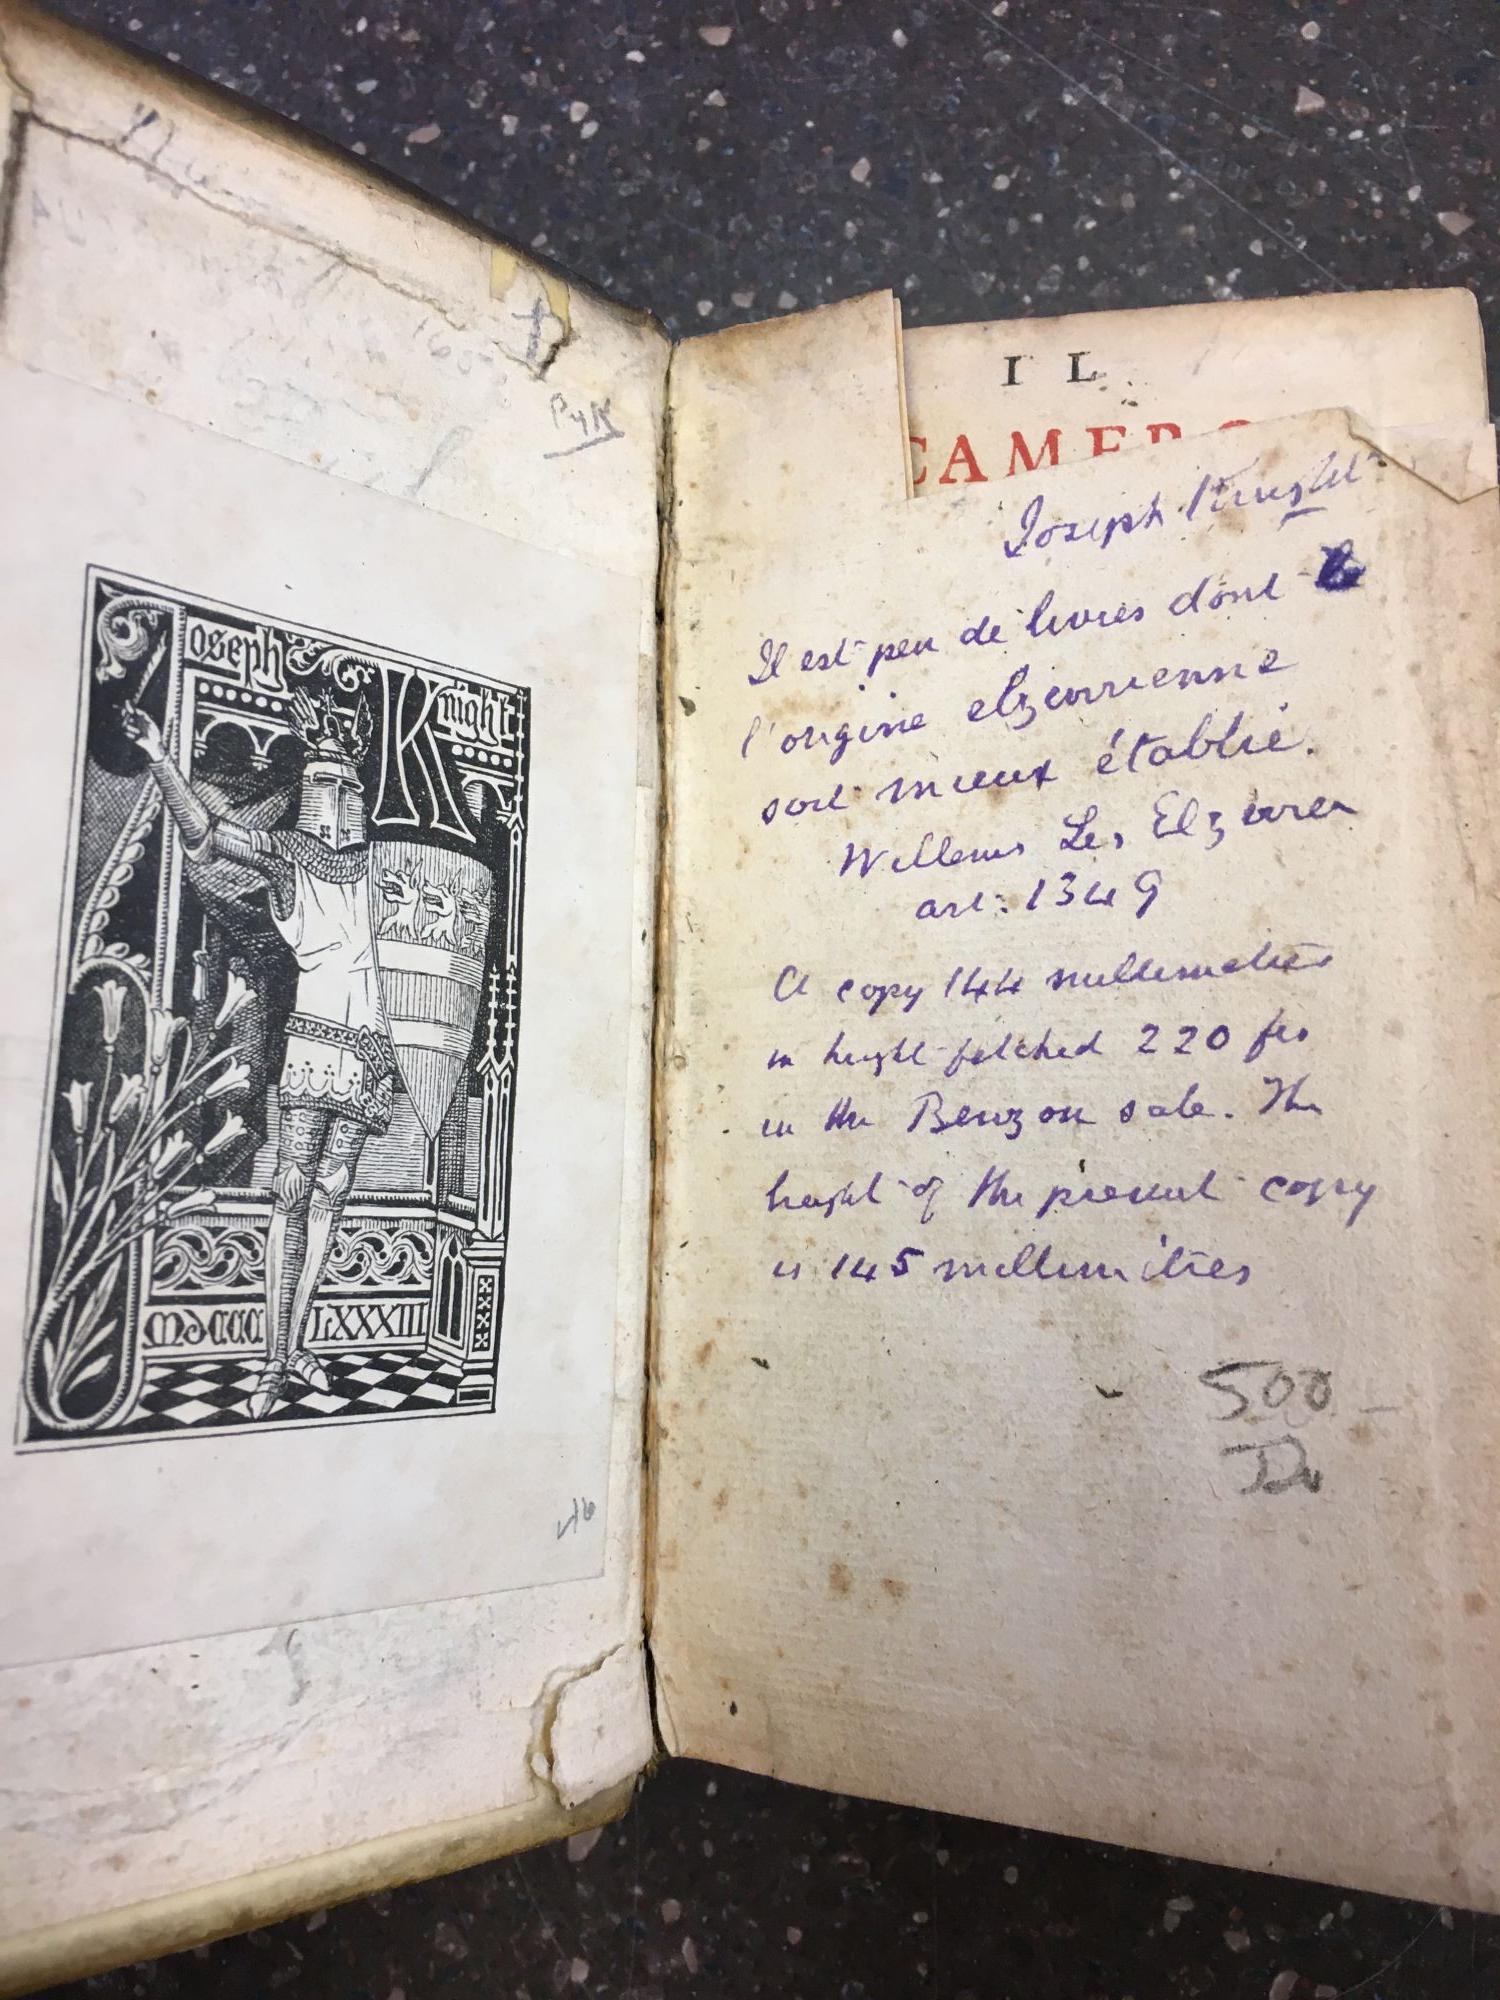 PyK
Joseph
Knight
MDCCC
LXXXIII
IL
CAMERO
Joseph Knight
Il est peu de livres dont
l'origine elzevirienne
soit mieux établie.
Willems Les Elzevier
art: 1349
A copy 144 millimetres
in height fetched 220 fcs
in the Benzon sale. The
height of the present copy
is 145 millimètres
500